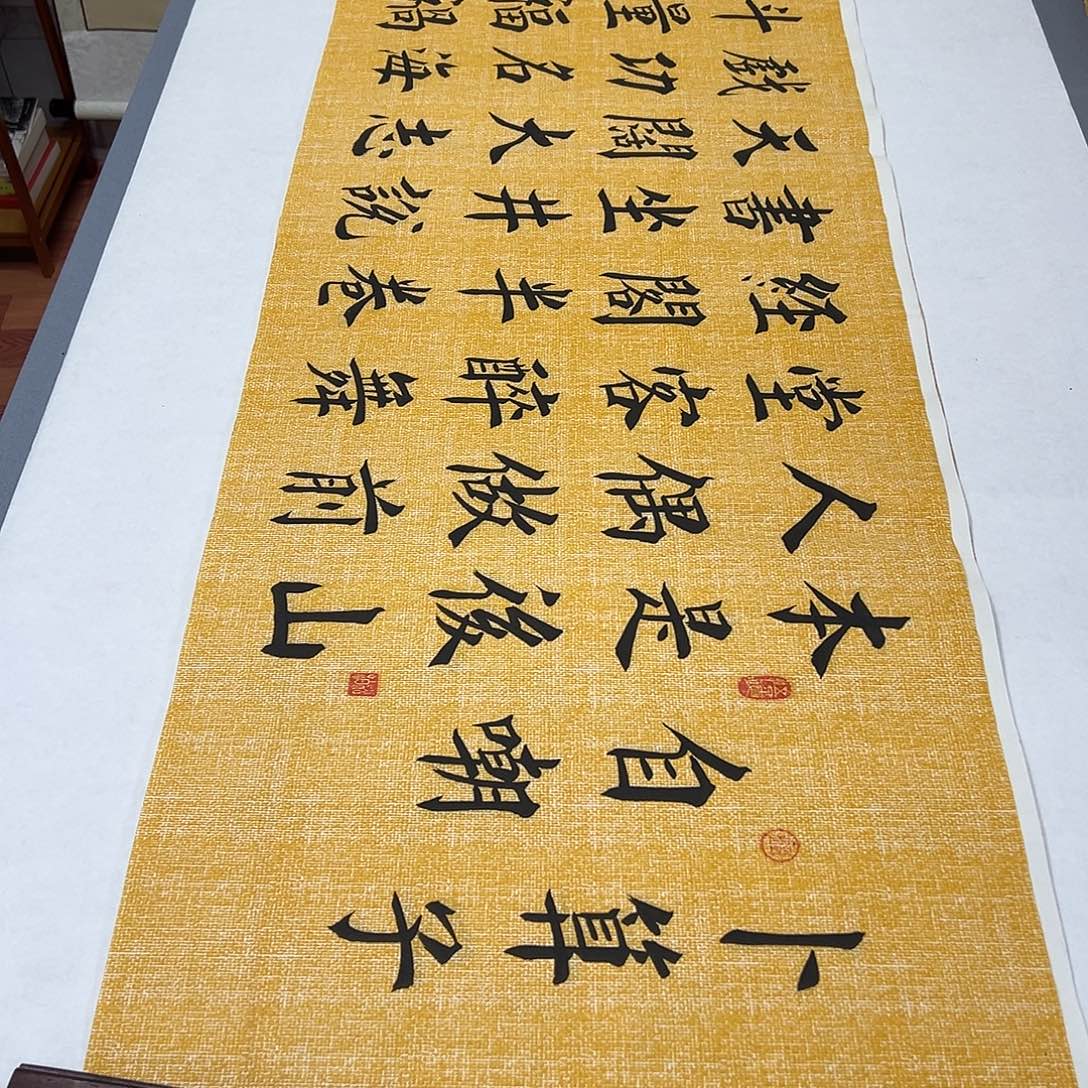 卜算子
自嘲
本是後山
人偶做前
堂客醉舞
經閣半卷
書坐井說
天闊大志
戲功名海
斗量福禍